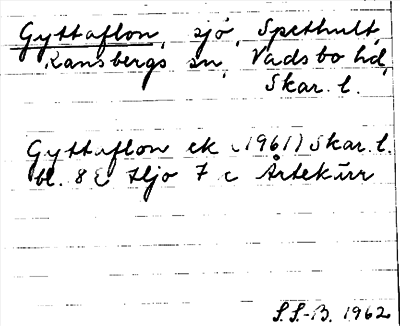 Gyttaflon, sjö, Spethult,
Ransbergs sn, Vadsbo hd,
Skar. l.
Gyttaflon ek (1961) Skar. l.
bl. 8 E Hjo 7 c Årtekärr
S.S.-B. 1962